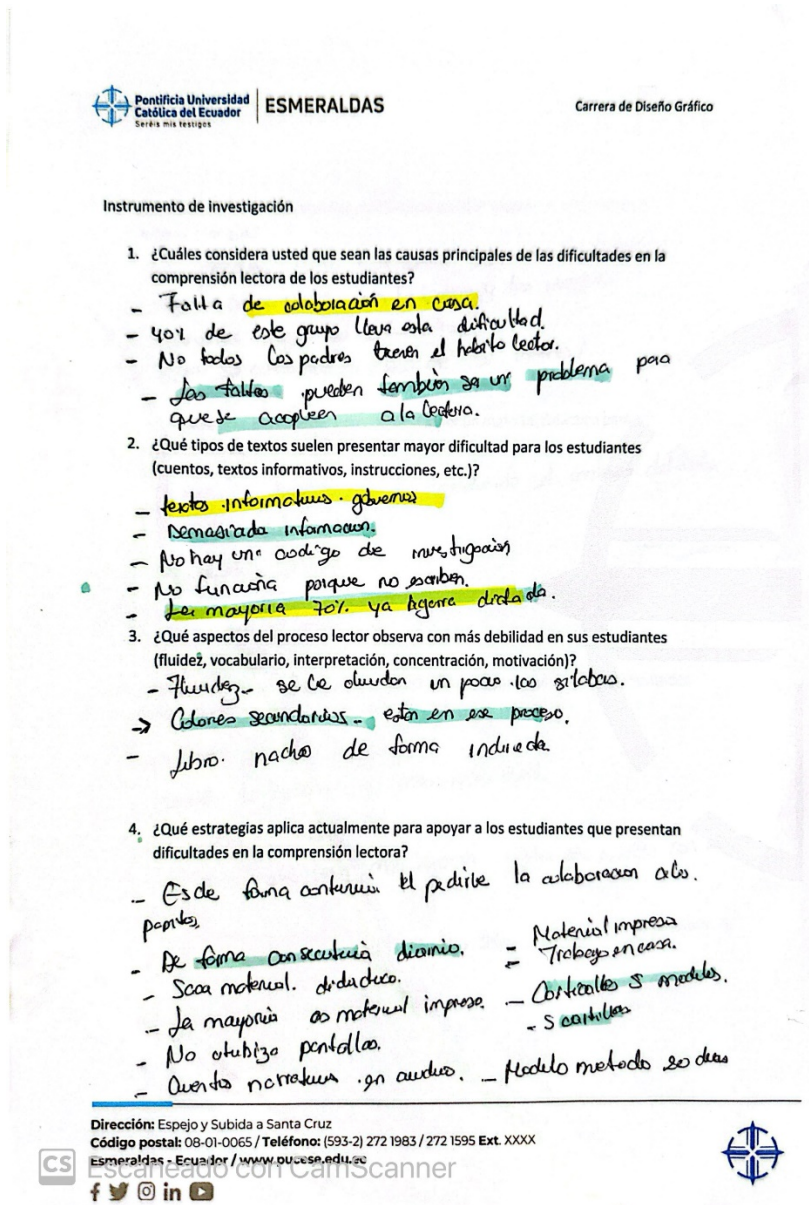 Pontificia Universidad
Católica del Ecuador
Seréis mis testigos
ESMERALDAS
Carrera de Diseño Gráfico
Instrumento de investigación
1. ¿Cuáles considera usted que sean las causas principales de las dificultades en la
comprensión lectora de los estudiantes?
- Falta de colaboración en casa.
- 40% de este grupo lleva esta dificultad.
- No todos los padres tienen el habito lector.
- Las faltas pueden también ser un problema para
que se acoplen a la lectura.
2. ¿Qué tipos de textos suelen presentar mayor dificultad para los estudiantes
(cuentos, textos informativos, instrucciones, etc.)?
- textos informativos.
- Demasiada informacion.
- No hay un codigo de investigacion
- No funciona porque no escriben.
- La mayoria 70% ya agarra dictado.
3. ¿Qué aspectos del proceso lector observa con más debilidad en sus estudiantes
(fluidez, vocabulario, interpretación, concentración, motivación)?
- Fluidez - se le olvidan un poco las silabas.
→ Colores secundarios - estan en ese proceso.
- Libro nacho de forma indirecta
4. ¿Qué estrategias aplica actualmente para apoyar a los estudiantes que presentan
dificultades en la comprensión lectora?
- Es de forma el pedirle la colaboracion a los
papitos,
- De forma consecutiva diario.
- Saca material. didactico.
- La mayoria es material impreso.
- No utiliza pantallas.
- Cuentos narrativos en audio.
= Material impreso
= Trabajo en casa.
- 5 modelos.
- 5 cartillas
- Modelo metodo 20 dias
Dirección: Espejo y Subida a Santa Cruz
Código postal: 08-01-0065 / Teléfono: (593-2) 272 1983 / 272 1595 Ext. XXXX
Esmeraldas - Ecuador / www.pucese.edu.ec
CS Escaneado con CamScanner